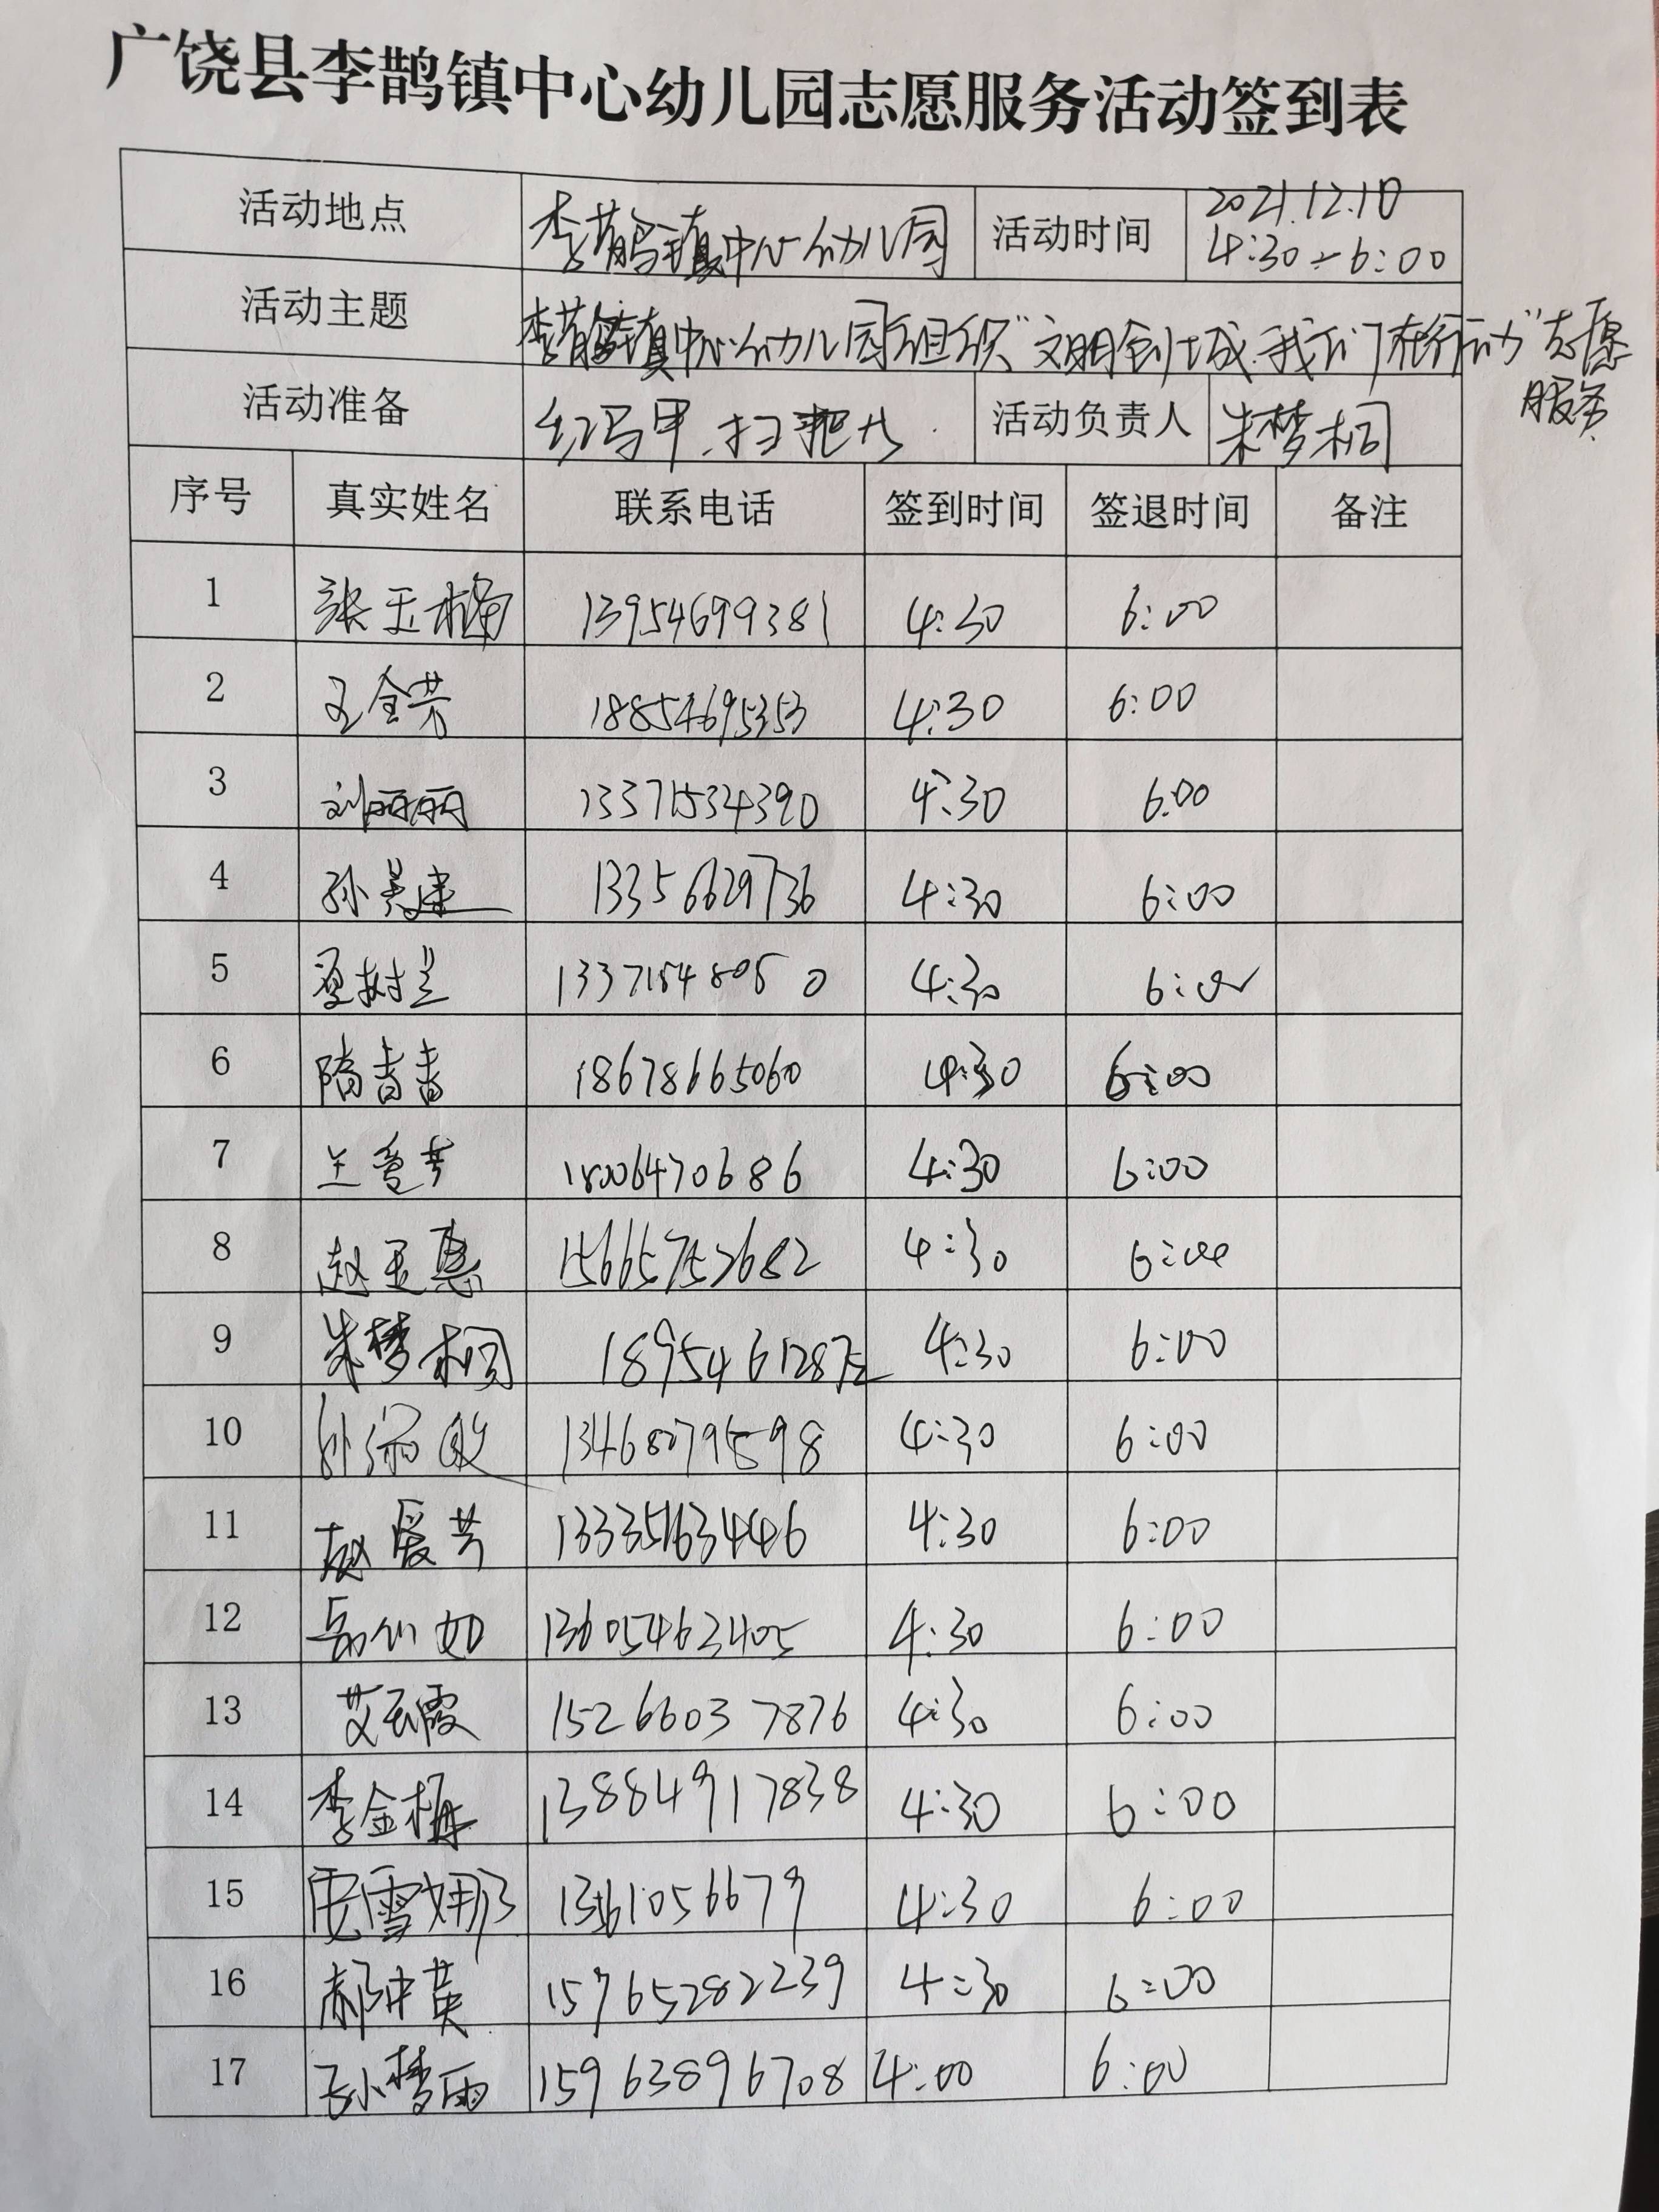 广饶县李鹊镇中心幼儿园志愿服务活动签到表
活动地点 李鹊镇中心幼儿园 活动时间 2021.12.10 4:30-6:00
活动主题 李鹊镇中心幼儿园组织"文明创城.我们在行动"志愿服务
活动准备 红马甲.扫把 活动负责人 朱梦桐
序号 真实姓名 联系电话 签到时间 签退时间 备注
1 张玉楠 13954699381 4:30 6:00
2 王全芳 18854695353 4:30 6:00
3 刘丽丽 13371534390 4:30 6:00
4 孙美建 13356629736 4:30 6:00
5 夏树兰 13371548050 4:30 6:00
6 隋青青 18678665060 4:30 6:00
7 王爱芳 18006470686 4:30 6:00
8 赵玉惠 15665752682 4:30 6:00
9 朱梦桐 4:30 6:00
10 13468079598 4:30 6:00
11 赵爱芳 13335163446 4:30 6:00
12 岳仙如 13605463405 4:30 6:00
13 艾玉霞 15266037876 4:30 6:00
14 李金梅 13884917838 4:30 6:00
15 雪娜 4:30 6:00
16 郝中英 15765282239 4:30 6:00
17 孙梦雨 15963896708 4:00 6:00